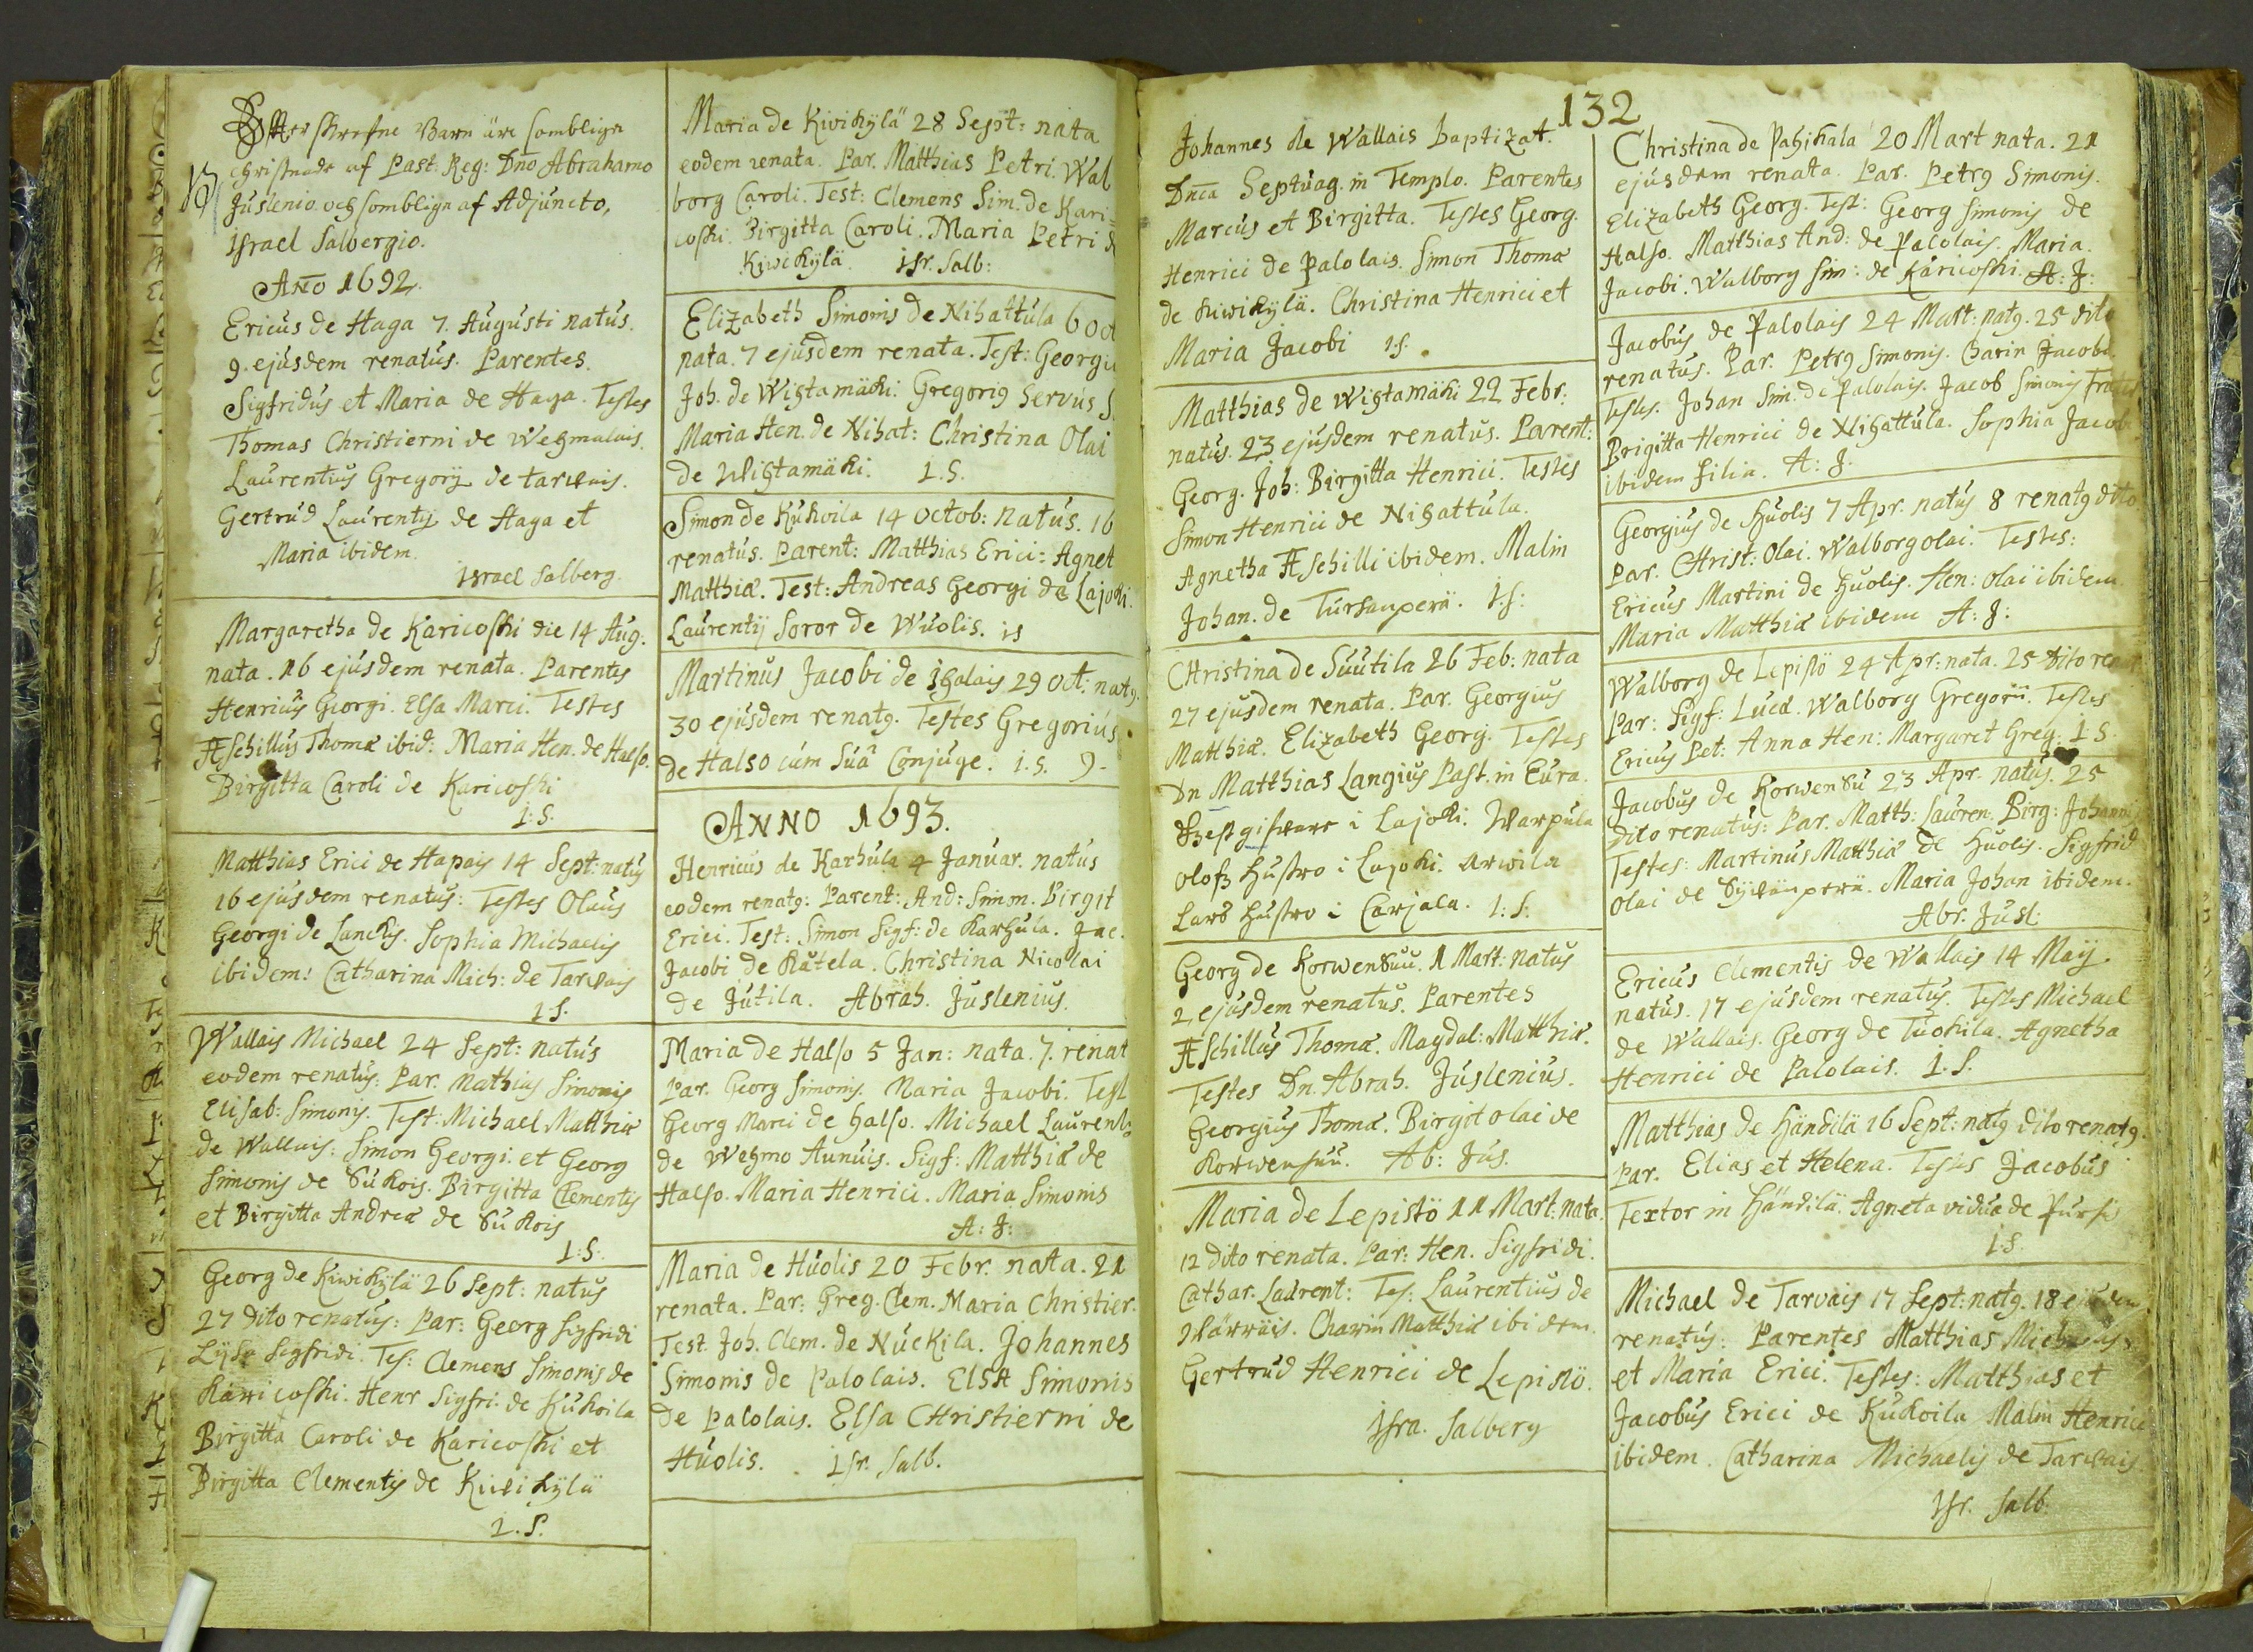 Efter skrefne Barn äre somblige
christnade af Past. Reg: Dno Abrahamo
Juslenio och somblige af Adjuncto,
Israel Salbergio.
Ano 1692.
Ericus de Haga 7. Augusti natus.
9. ejusdem renatus. Parentes.
Sigfridus et Maria de Haga. Testes
Thomas Christierni de Wehmalais.
Laurentius Gregorij de tarvais.
Gertrud Laurentij de Haga et
Maria ibidem.
Israel Salberg.
Margaretha de Karicoski die 14 Aug.
nata. 16 ejusdem renata. Parentes
Henricus Georgi. Elsa Marci. Testes
Æschillus Thomæ ibid: Maria Hen. de Halso.
Birgitta Caroli de Karicoski
I: S.
Matthias Erici de Hapais 14 Sept: natus
16 ejusdem renatus: Testes Olaus
Georgi de Lanckis. Sophia Michaelis
ibidem: Catharina Mich: de Tarvais
I. S.
Wallais Michael 24 Sept: natus
eodem renatus: Par. Mathias Simonis
Elisab: Simonis. Test: Michael Matthiæ
de Wallais: Simon Georgi et Georg
Simonis de Sukois. Birgitta Clementis
et Birgitta Andreæ de Sukois
I: S.
Georg de Kivikylä 26 Sept: natus
27 dito renatus: Par: Georg Sigfridi
Lysa Sigfridi. Tes: Clemens Simonis de
Karicoski. Henr Sigfri. de Kukoila
Birgitta Caroli de Karicoski et
Birgitta Clementis de Kivikylä
I. S.
Maria de Kivikylä 28 Sept: nata
eodem renata. Par. Matthias Petri. Wal
borg Caroli. Test: Clemens Sim. de Kari=
coski. Birgitta Caroli. Maria Petri d
Kivikylä. Isr. Salb:
Elizabeth Simonis de Nihattula 6 Oct
nata. 7 ejusdem renata. Test: Georgiu
Joh. de Wistamäki. Gregorig Servus S.
Maria Hen. de Nihat: Christina Olai
de Wistamäki. I. S.
Simon de Kukoila 14 octob: natus. 16
renatus. Parent: Matthias Erici: Agnet
Matthiæ. Test: Andreas Georgi de Lajoki.
Laurentij Soror de Wuolis. is
Martinus Jacobi de Ihalais 29 Oct: natg.
30 ejusdem renatg. Testes Gregorius
de Halso cum Suâ Conjuge. I. S.
ANNO 1693.
Henricus de Karhula 4 Januar. natus
eodem renatg: Parent: And: Simon. Birgit
Erici. Test: Simon Sigf: de Karhula. Jac.
Jacobi de Rätela. Christina Nicolai
de Jutila. Abrah. Juslenius.
Maria de Halso 5 Jan: nata. 7. renat
Par. Georg Simonis. Maria Jacobi. Test
Georg Marci de halso. Michael Laurent:
de Wehmo Aunuis. Sigf: Matthiæ de
Halso. Maria Henrici. Maria Simonis
A: J:
Maria de Huolis 20 Febr. nata. 21
renata. Par: Greg. Clem. Maria Christier.
Test. Joh. Clem. de Nuckila. Johannes
Simonis de Palolais. Elsa Simonis
de Palolais. Elsa Christierni de
Huolis. Isr. Salb.
132
Johannes de Wallais baptizat.
Dnca Septuag. in Templo. Parentes
Marcus et Birgitta. Testes Georg.
Henrici de Palolais. Simon Thomæ
de Kivikylä. Christina Henrici et
Maria Jacobi I. S.
Matthias de Wistamäki 22 Febr:
natus. 23 ejusdem renatus. Parent:
Georg. Joh: Birgitta Henrici. Testes
Simon Henrici de Nihattula.
Agnetha Æschilli ibidem. Malin
Johan. de Tursunperä. I: S:
Christina de Suutila 26 Feb: nata
27 ejusdem renata. Par. Georgius
Matthiæ. Elizabeth Georg. Testes
Dn Matthias Langius Past. in Eura.
Giestgifware i Lajoki. Warpula
olofz Hustro i Lajoki. Arwila
Lars hustro i Carjala. I: S:
Georg de Korwensuu. 1 Mart: natus
2 ejusdem renatus. Parentes
Æschillus Thomæ. Magdal: Matthiæ.
Testes Dn. Abrah. Juslenius.
Georgius Thomæ. Birgit olai de
Korwensuu. Ab: Jus.
Maria de Lepistö 11 Mart: nata.
12 dito renata. Par: Hen. Sigfridi.
Cathar. Laurent: Tes: Laurentius de
Närväis. Charin Matthiæ ibidem.
Gertrud Henrici de Lepistö.
Isra. Salberg
Christina de Pahikala 20 Mart nata. 21
ejusdem renata. Par. Petrg Simonis.
Elizabeth Georg. Test: Georg Simonis de
Halso. Matthias And: de Palolais. Maria.
Jacobi. Walborg Sim: de Karicoski. A: J:
Jacobus de Palolais 24 Mart: natg. 25 dito
renatus. Par. Petrg Simonis. Carin Jacobi.
Testes. Johan Sim. de Palolais. Jacob Simonis frater
Brigitta Henrici de Nihattula. Sophia Jacobi
ibidem filia. A: J:
Georgius de Huolis 7 Apr. natus 8 renatg dito
Par. Christ: Olai. Walborg olai. Testes:
Ericus Martini de Huolis. Hen: olai ibidem
Maria Matthiæ ibidem A: J:
Walborg de Lepistö 24 Apr: nata. 25 dito renat
Par: Sigf: Lucæ. Walborg Gregorii. Testes
Ericus Pet: Anna Hen: Margaret Greg. I S.
Jacobus de Korwensu 23 Apr. natus. 25
dito renatus: Par. Matth: Lauren. Birg: Johanni
Testes: Martinus Matthiæ de Huolis. Sigfrid
olai de Syvänperä. Maria Johan ibidem.
Abr. Jusl:
Ericus Clementis de Wallais 14 Maij
natus. 17 ejusdem renatus. Testes Michael
de Wallais. Georg de Tuokila. Agnetha
Henrici de Palolais. I. S.
Matthias de Händilä 16 Sept: natg dito renatg.
Par. Elias et Helena. Testes Jacobus
Textor in Händilä. Agneta vidua de Pursi
I. S.
Michael de Tarvais 17 Sept: natg. 18 ejusdem
renatus: Parentes Matthias Michaelis
et Maria Erici. Testes: Matthias et
Jacobus Erici de Kukoila Malin Henrici
ibidem. Catharina Michaelis de Tarvais.
Isr. Salb.